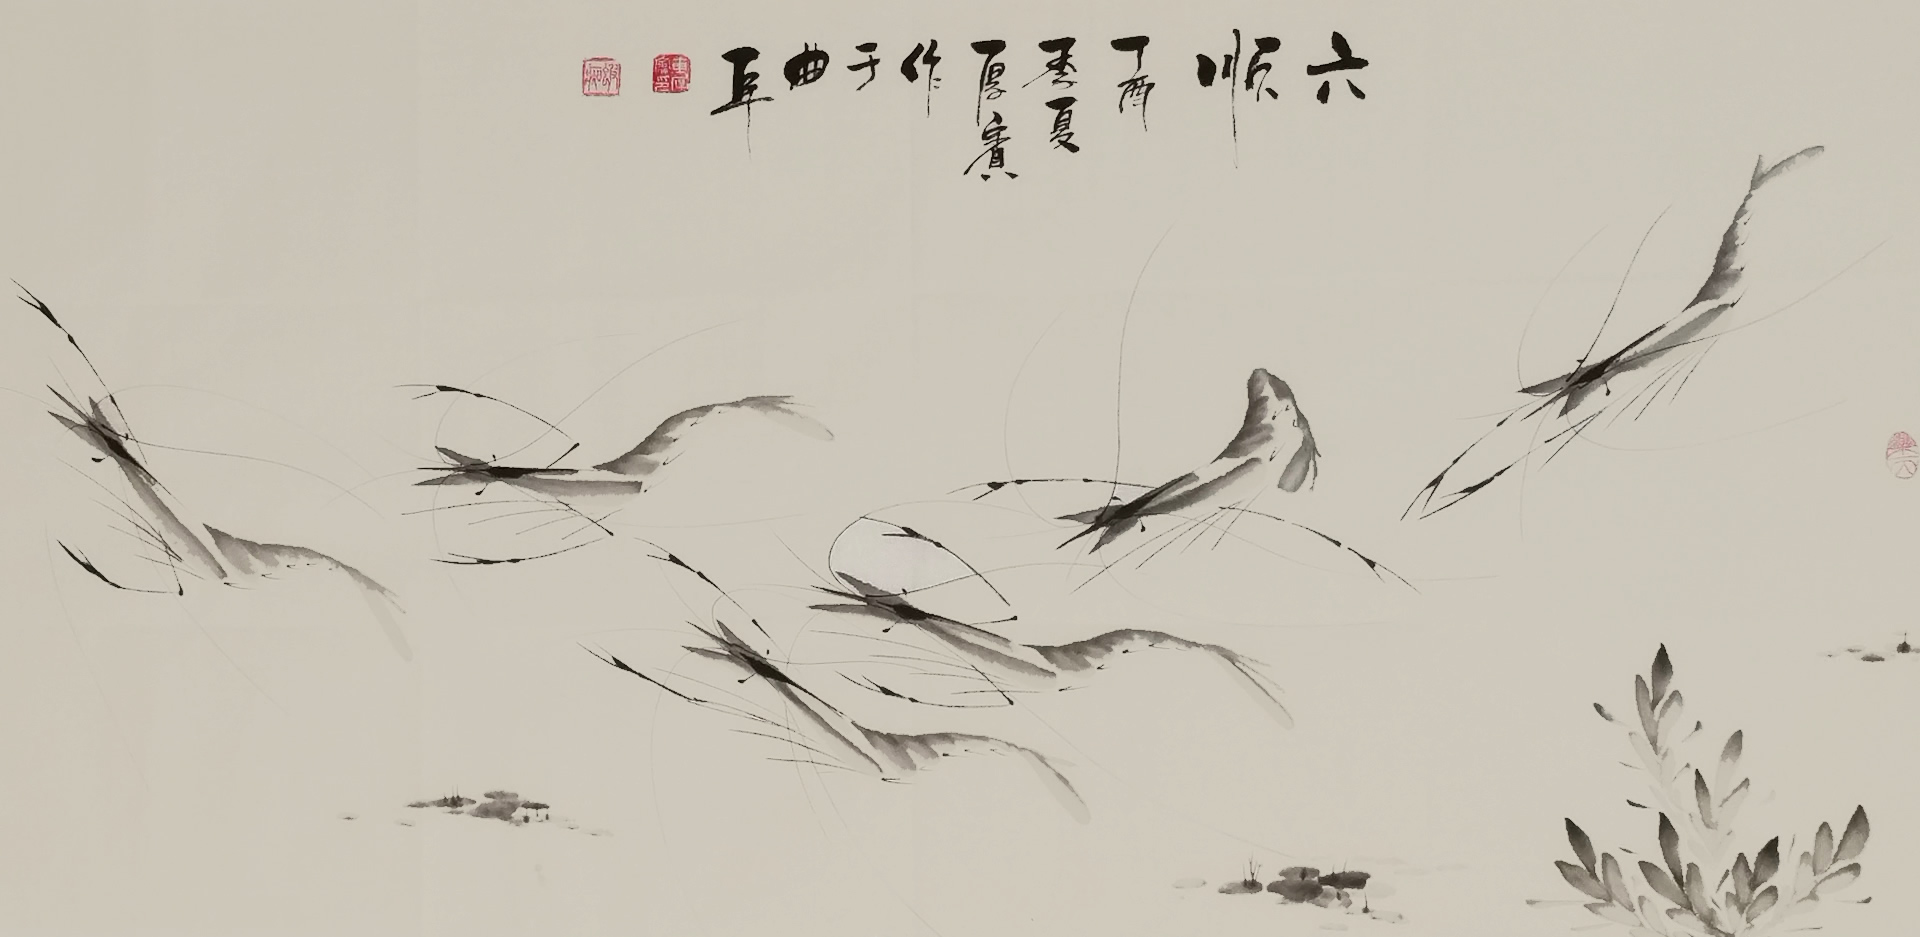 六
順
丁酉
季夏
厚賓
作
于
曲
阜